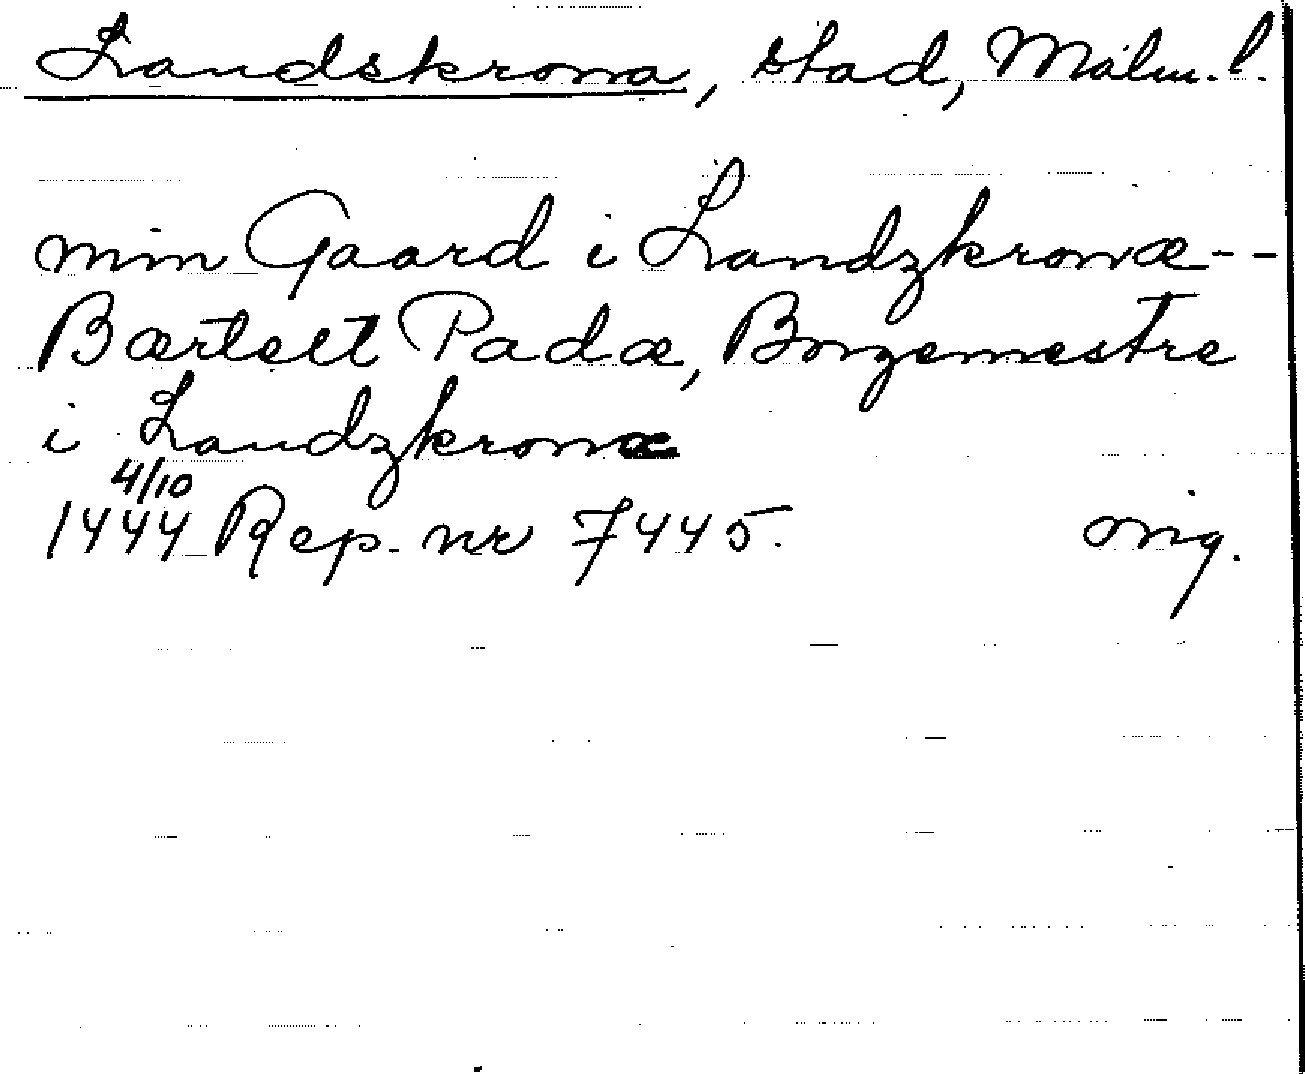 Landskrona, stad, Malm. l.
min Gaard i Landzkronæ - -
Bærtelt Padæ, Borgemestre
i Landzkronæ
4/10
1444 Rep. nr 7445. orig.